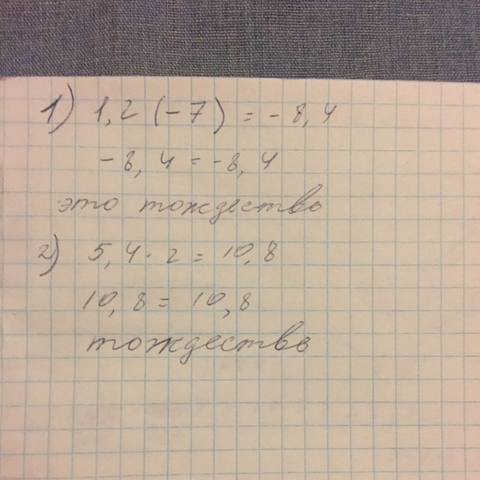 1) 1,2 (-7) = -8,4
-8,4 = -8,4
это тождество
2) 5,4 · 2 = 10,8
10,8 = 10,8
тождество